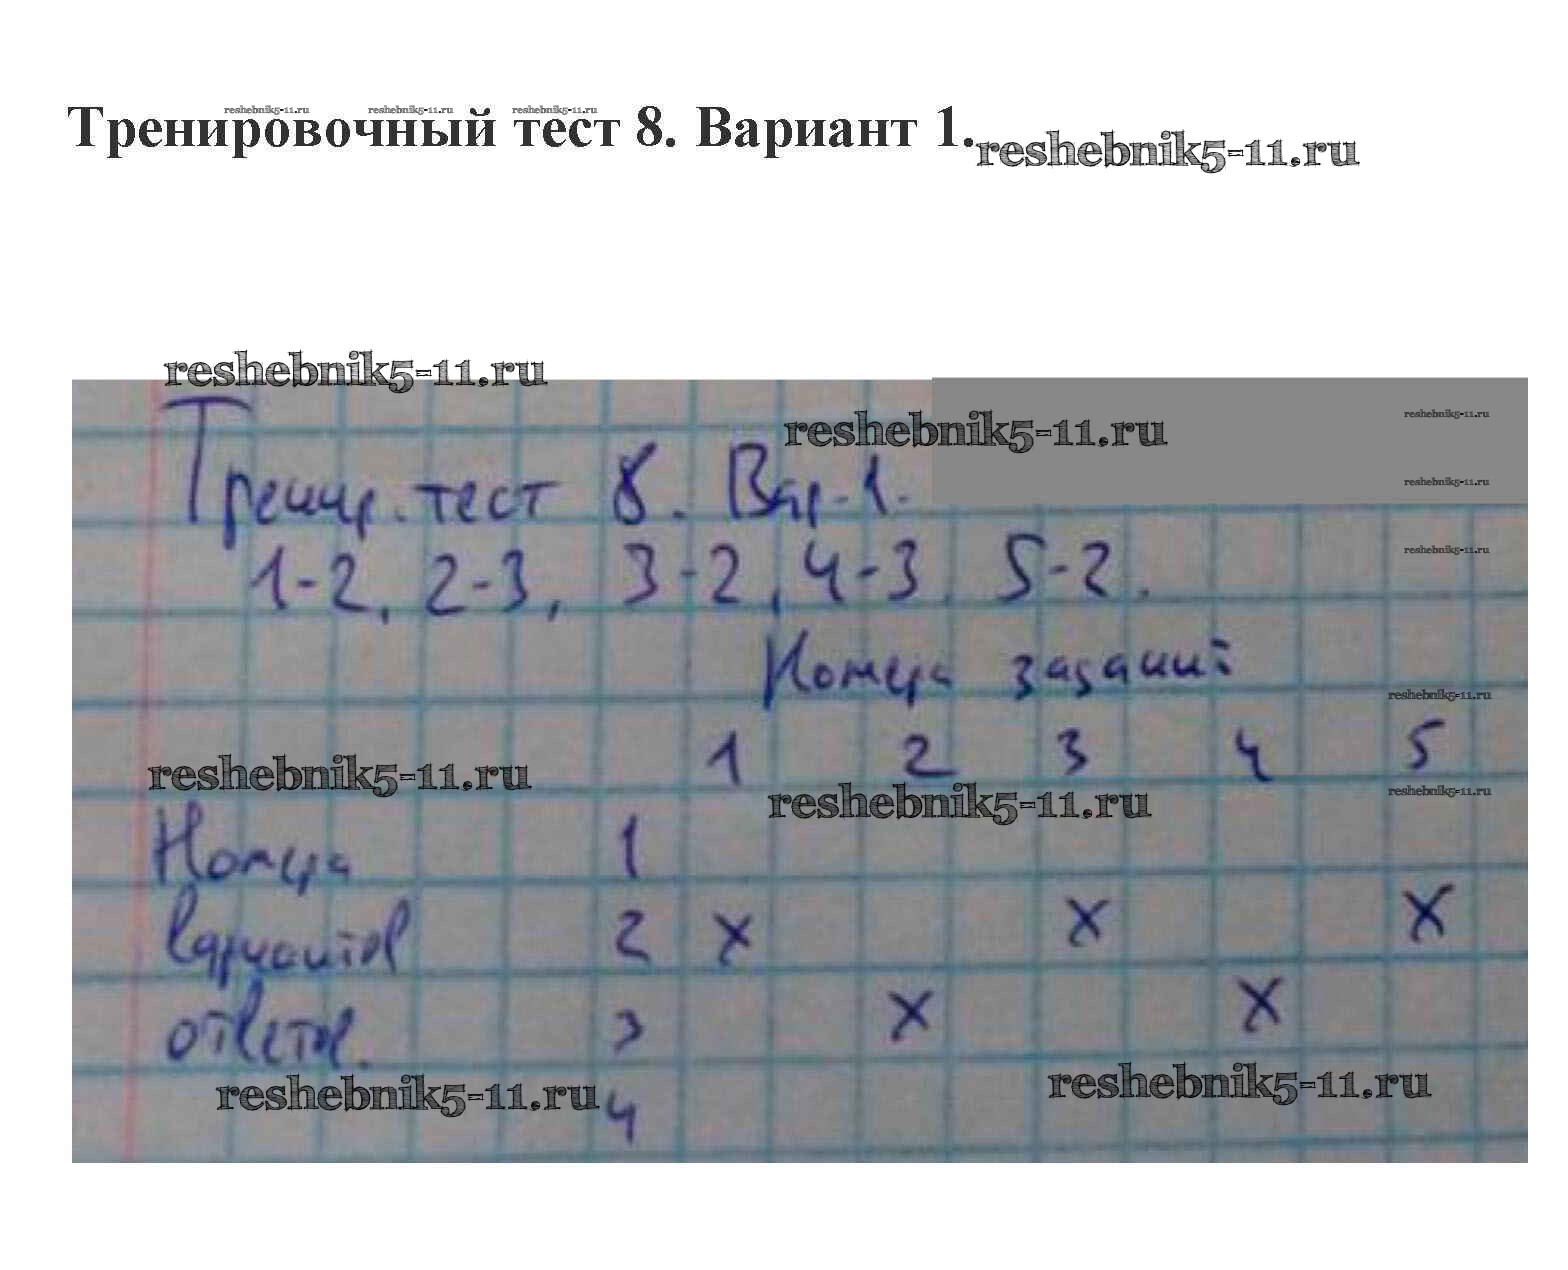 reshebnik5-11.ru reshebnik5-11.ru reshebnik5-11.ru
Тренировочный тест 8. Вариант 1.
reshebnik5-11.ru
reshebnik5-11.ru
reshebnik5-11.ru
reshebnik5-11.ru
Тренир. тест 8. Вар. 1.
reshebnik5-11.ru
1-2, 2-3, 3-2, 4-3, 5-2.
reshebnik5-11.ru
Номера заданий
reshebnik5-11.ru
1 2 3 4 5
reshebnik5-11.ru
reshebnik5-11.ru
reshebnik5-11.ru
Номера 1
вариантов 2 х х х
ответов. 3 х х
reshebnik5-11.ru
reshebnik5-11.ru
4